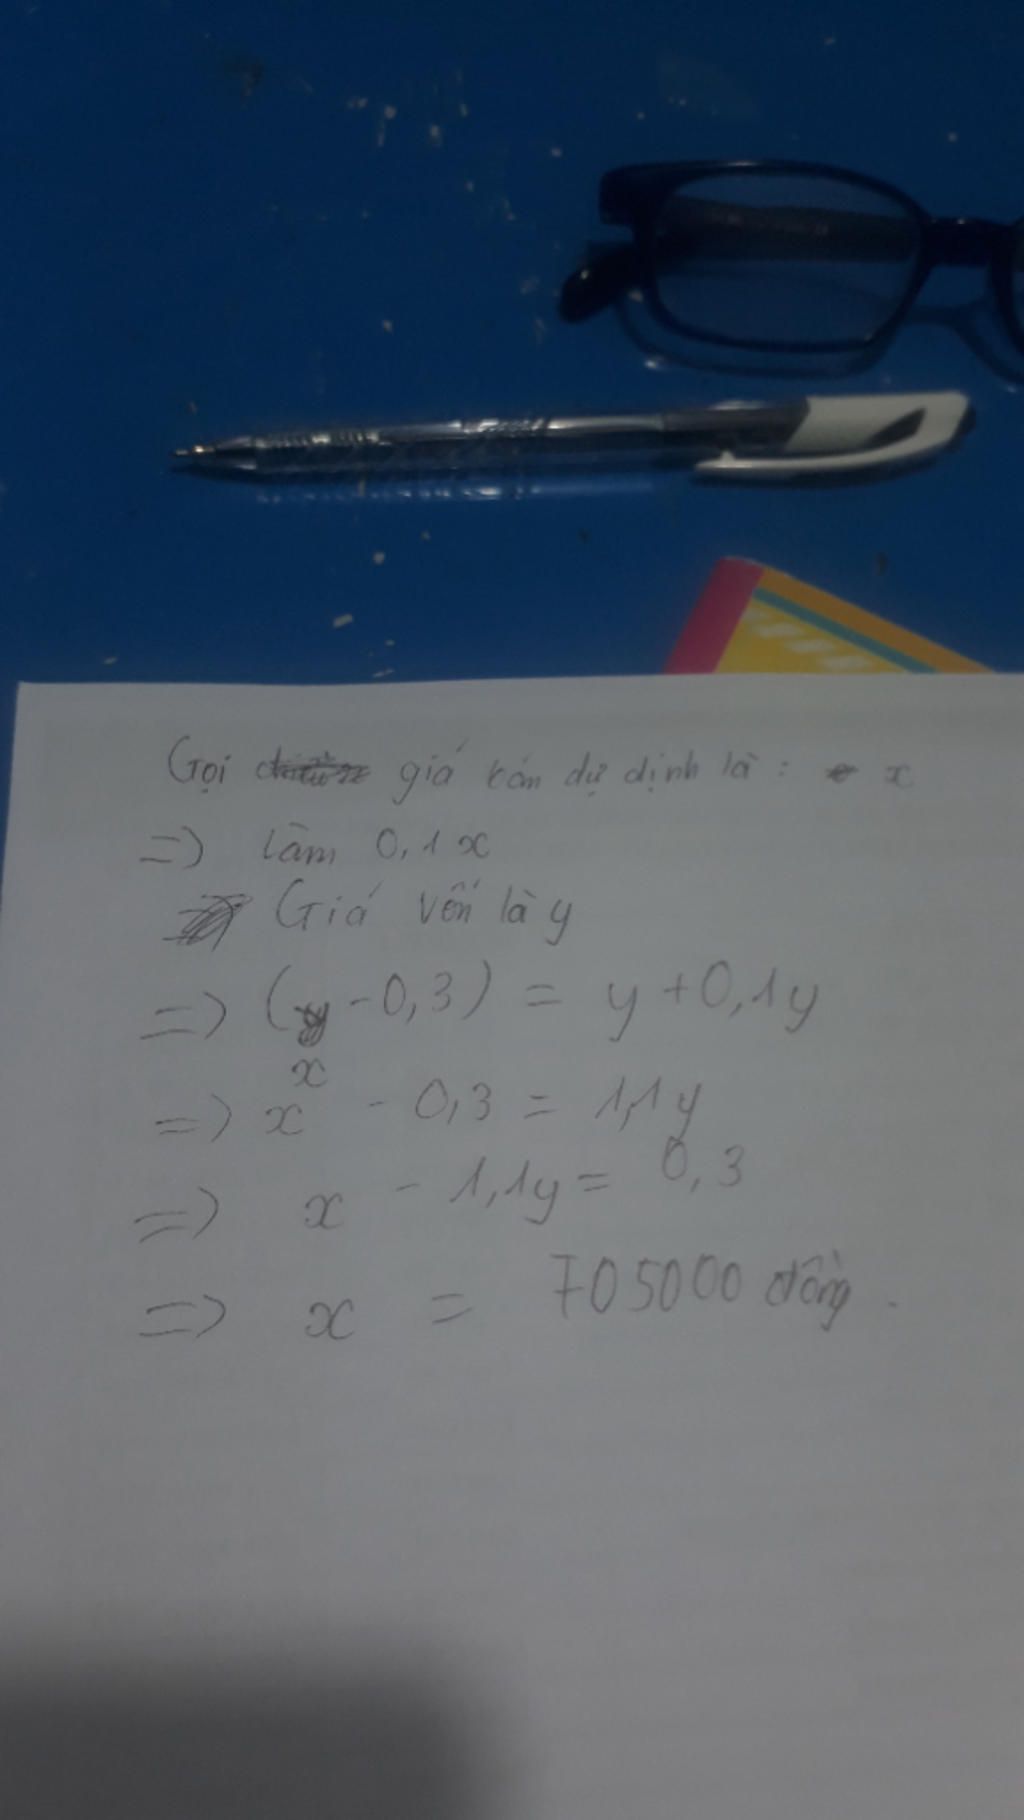 Gọi giá bán dự định là : x
=> làm 0,1x
Giá vốn là y
=> (x - 0,3) = y + 0,1y
=> x - 0,3 = 1,1y
=> x - 1,1y = 0,3
=> x = 705000 đồng.